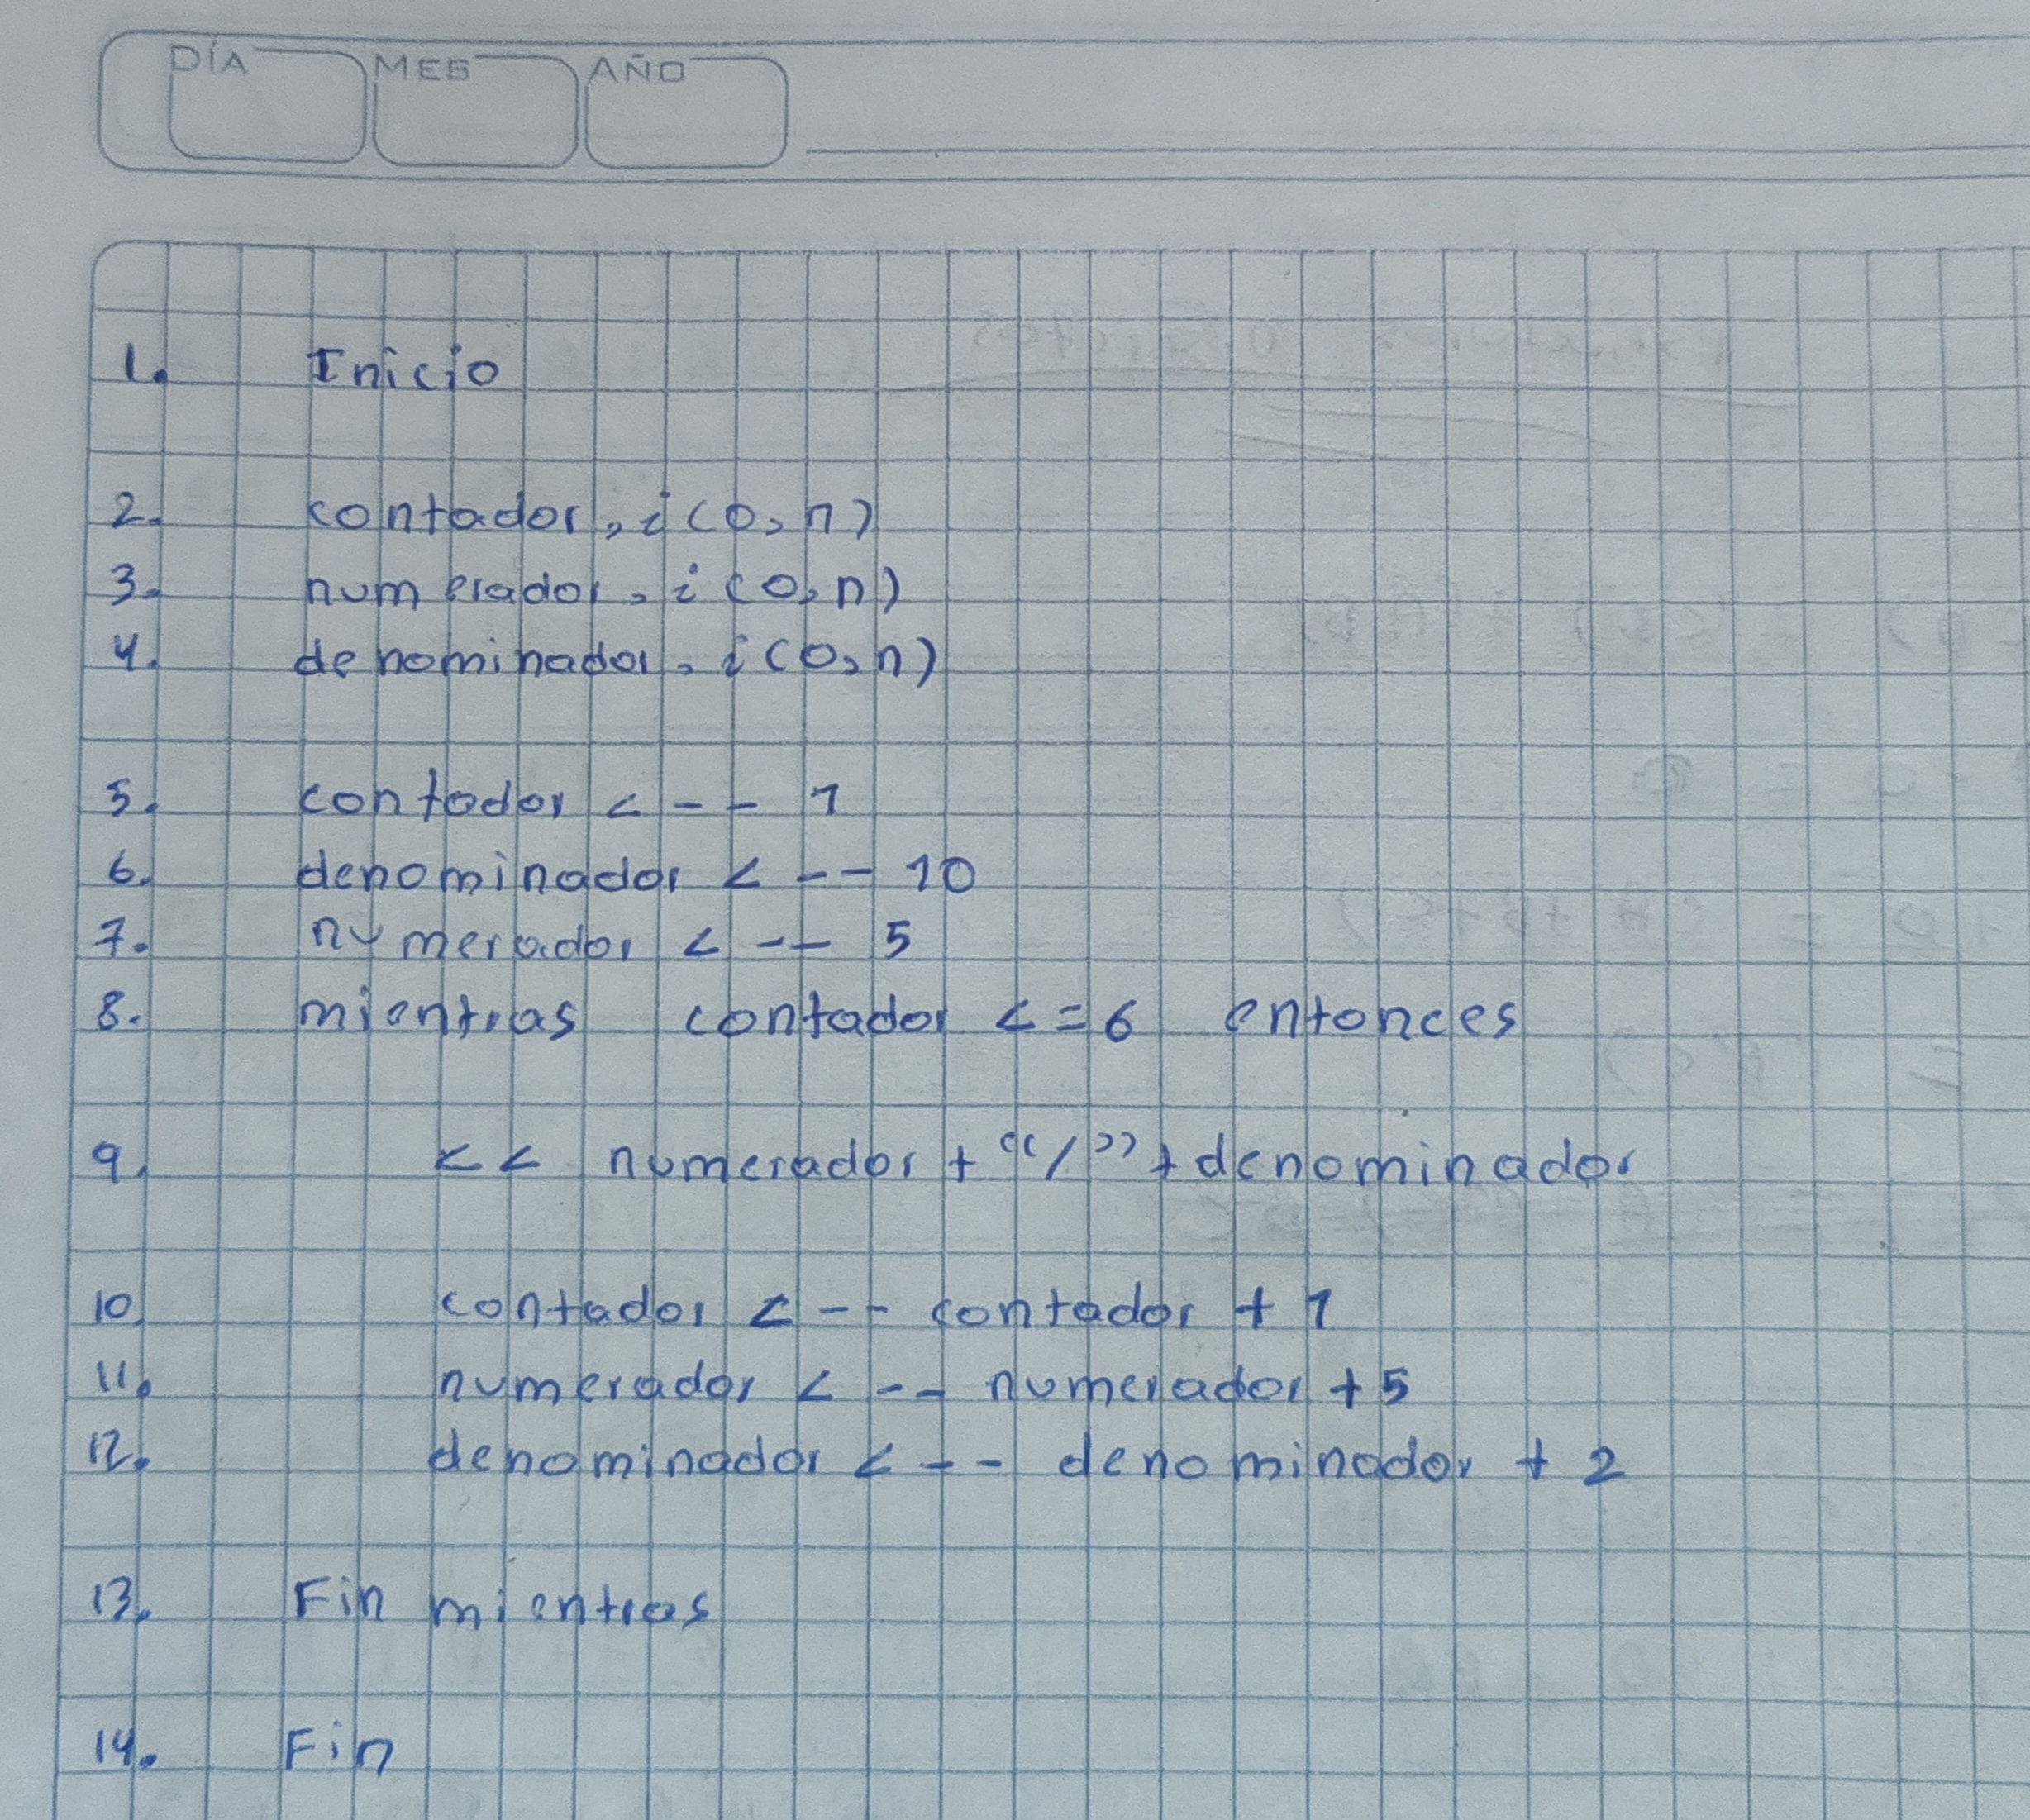 DÍA MES AÑO
1. Inicio
2. contador, i(0, n)
3. numerador, i(0, n)
4. denominador, i(0, n)
5. contador <-- 1
6. denominador <-- 10
7. numerador <-- 5
8. mientras contador <=6 entonces
9. << numerador + “/” + denominador
10. contador <-- contador + 1
11. numerador <-- numerador + 5
12. denominador <-- denominador + 2
13. Fin mientras
14. Fin